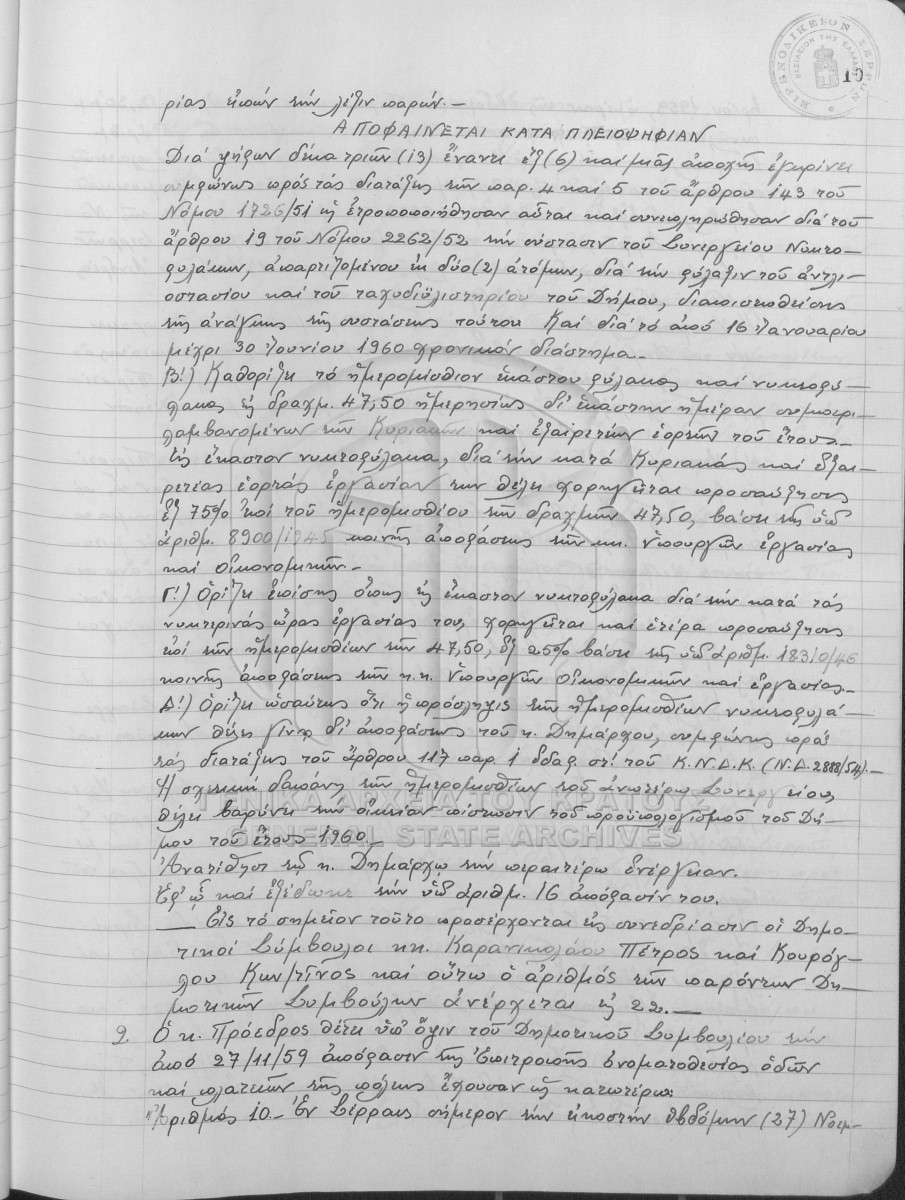 ΕΙΡΗΝΟΔΙΚΕΙΟΝ ΣΕΡΡΩΝ
ΒΑΣΙΛΕΙΟΝ ΤΗΣ ΕΛΛΑΔΟΣ
10
ρίας εἰπών τήν λέξιν παρών.—
ΑΠΟΦΑΙΝΕΤΑΙ ΚΑΤΑ ΠΛΕΙΟΨΗΦΙΑΝ
Διά ψήφων δέκα τριῶν (13) ἔναντι ἕξ (6) καί μιᾶς ἀποχῆς ἐγκρίνει
συμφώνως πρός τάς διατάξεις τῶν παρ. 4 καί 5 τοῦ ἄρθρου 143 τοῦ
Νόμου 1726/51 ὡς ἐτροποποιήθησαν αὗται καί συνεπληρώθησαν διά τοῦ
ἄρθρου 19 τοῦ Νόμου 2262/52 τήν σύστασιν τοῦ Συνεργείου Νυκτο-
φυλάκων, ἀπαρτιζομένου ἐκ δύο (2) ἀτόμων, διά τήν φύλαξιν τοῦ ἀντλι-
οστασίου καί τοῦ ταχυδιϋλιστηρίου τοῦ Δήμου, διαπιστωθείσης
τῆς ἀνάγκης τῆς συστάσεως τούτου καί διά τό ἀπό 16 Ἰανουαρίου
μέχρι 30 Ἰουνίου 1960 χρονικόν διάστημα.—
Β!) Καθορίζει τό ἡμερομίσθιον ἑκάστου φύλακος καί νυκτοφύ-
λακος εἰς δραχμ. 47,50 ἡμερησίως δι' ἑκάστην ἡμέραν συμπερι-
λαμβανομένων τῶν Κυριακῶν καί ἐξαιρετέων ἑορτῶν τοῦ ἔτους.—
Εἰς ἕκαστον νυκτοφύλακα, διά τήν κατά Κυριακάς καί ἐξαι-
ρετέας ἑορτάς ἐργασίαν των θέλει χορηγεῖται προσαύξησις
ἐξ 75% ἐπί τοῦ ἡμερομισθίου τῶν δραχμῶν 47,50, βάσει τῆς ὑπ'
ἀριθμ. 8900/1945 κοινῆς ἀποφάσεως τῶν κ.κ. Ὑπουργῶν ἐργασίας
καί Οἰκονομικῶν.—
Γ!) Ὁρίζει ἐπίσης ὅπως εἰς ἕκαστον νυκτοφύλακα διά τήν κατά τάς
νυκτερινάς ὥρας ἐργασίας του, χορηγεῖται καί ἑτέρα προσαύξησις
ἐπί τῶν ἡμερομισθίων τῶν 47,50, ἐξ 25% βάσει τῆς ὑπ' ἀριθμ. 18310/46
κοινῆς ἀποφάσεως τῶν κ.κ. Ὑπουργῶν Οἰκονομικῶν καί ἐργασίας.—
Δ!) Ὁρίζει ὡσαύτως ὅτι ἡ πρόσληψις τῶν ἡμερομισθίων νυκτοφυλά-
κων θέλει γίνῃ δι' ἀποφάσεως τοῦ κ. Δημάρχου, συμφώνως πρός
τάς διατάξεις τοῦ ἄρθρου 117 παρ. 1 ἐδαφ. στ! τοῦ Κ.Ν.Δ.Κ. (Ν.Δ. 2888/54).—
Ἡ σχετική δαπάνη τῶν ἡμερομισθίων τοῦ ἀνωτέρω Συνεργείου,
θέλει βαρύνει τήν οἰκείαν πίστωσιν τοῦ προϋπολογισμοῦ τοῦ Δή-
μου τοῦ ἔτους 1960.—
Ἀνατίθησι τῷ κ. Δημάρχῳ τήν περαιτέρω ἐνέργειαν.
Ἐφ' ᾧ καί ἐξέδωκε τήν ὑπ' ἀριθμ. 16 ἀπόφασίν του.
— Εἰς τό σημεῖον τοῦτο προσέρχονται εἰς συνεδρίασιν οἱ Δημο-
τικοί Σύμβουλοι κ.κ. Καρανικολάου Πέτρος καί Κουρόγ-
λου Κων/τῖνος καί οὕτω ὁ ἀριθμός τῶν παρόντων Δη-
μοτικῶν Συμβούλων ἀνέρχεται εἰς 22.—
2. Ὁ κ. Πρόεδρος θέτει ὑπ' ὄψιν τοῦ Δημοτικοῦ Συμβουλίου τήν
ἀπό 27/11/59 ἀπόφασιν τῆς Ἐπιτροπῆς ὀνοματοθεσίας ὁδῶν
καί πλατειῶν τῆς πόλεως ἔχουσαν ὡς κατωτέρω:
"Ἀριθμός 10.— Ἐν Σέρραις σήμερον τήν εἰκοστήν ἑβδόμην (27) Νοεμ-
ΓΕΝΙΚΑ ΑΡΧΕΙΑ ΤΟΥ ΚΡΑΤΟΥΣ
GENERAL STATE ARCHIVES